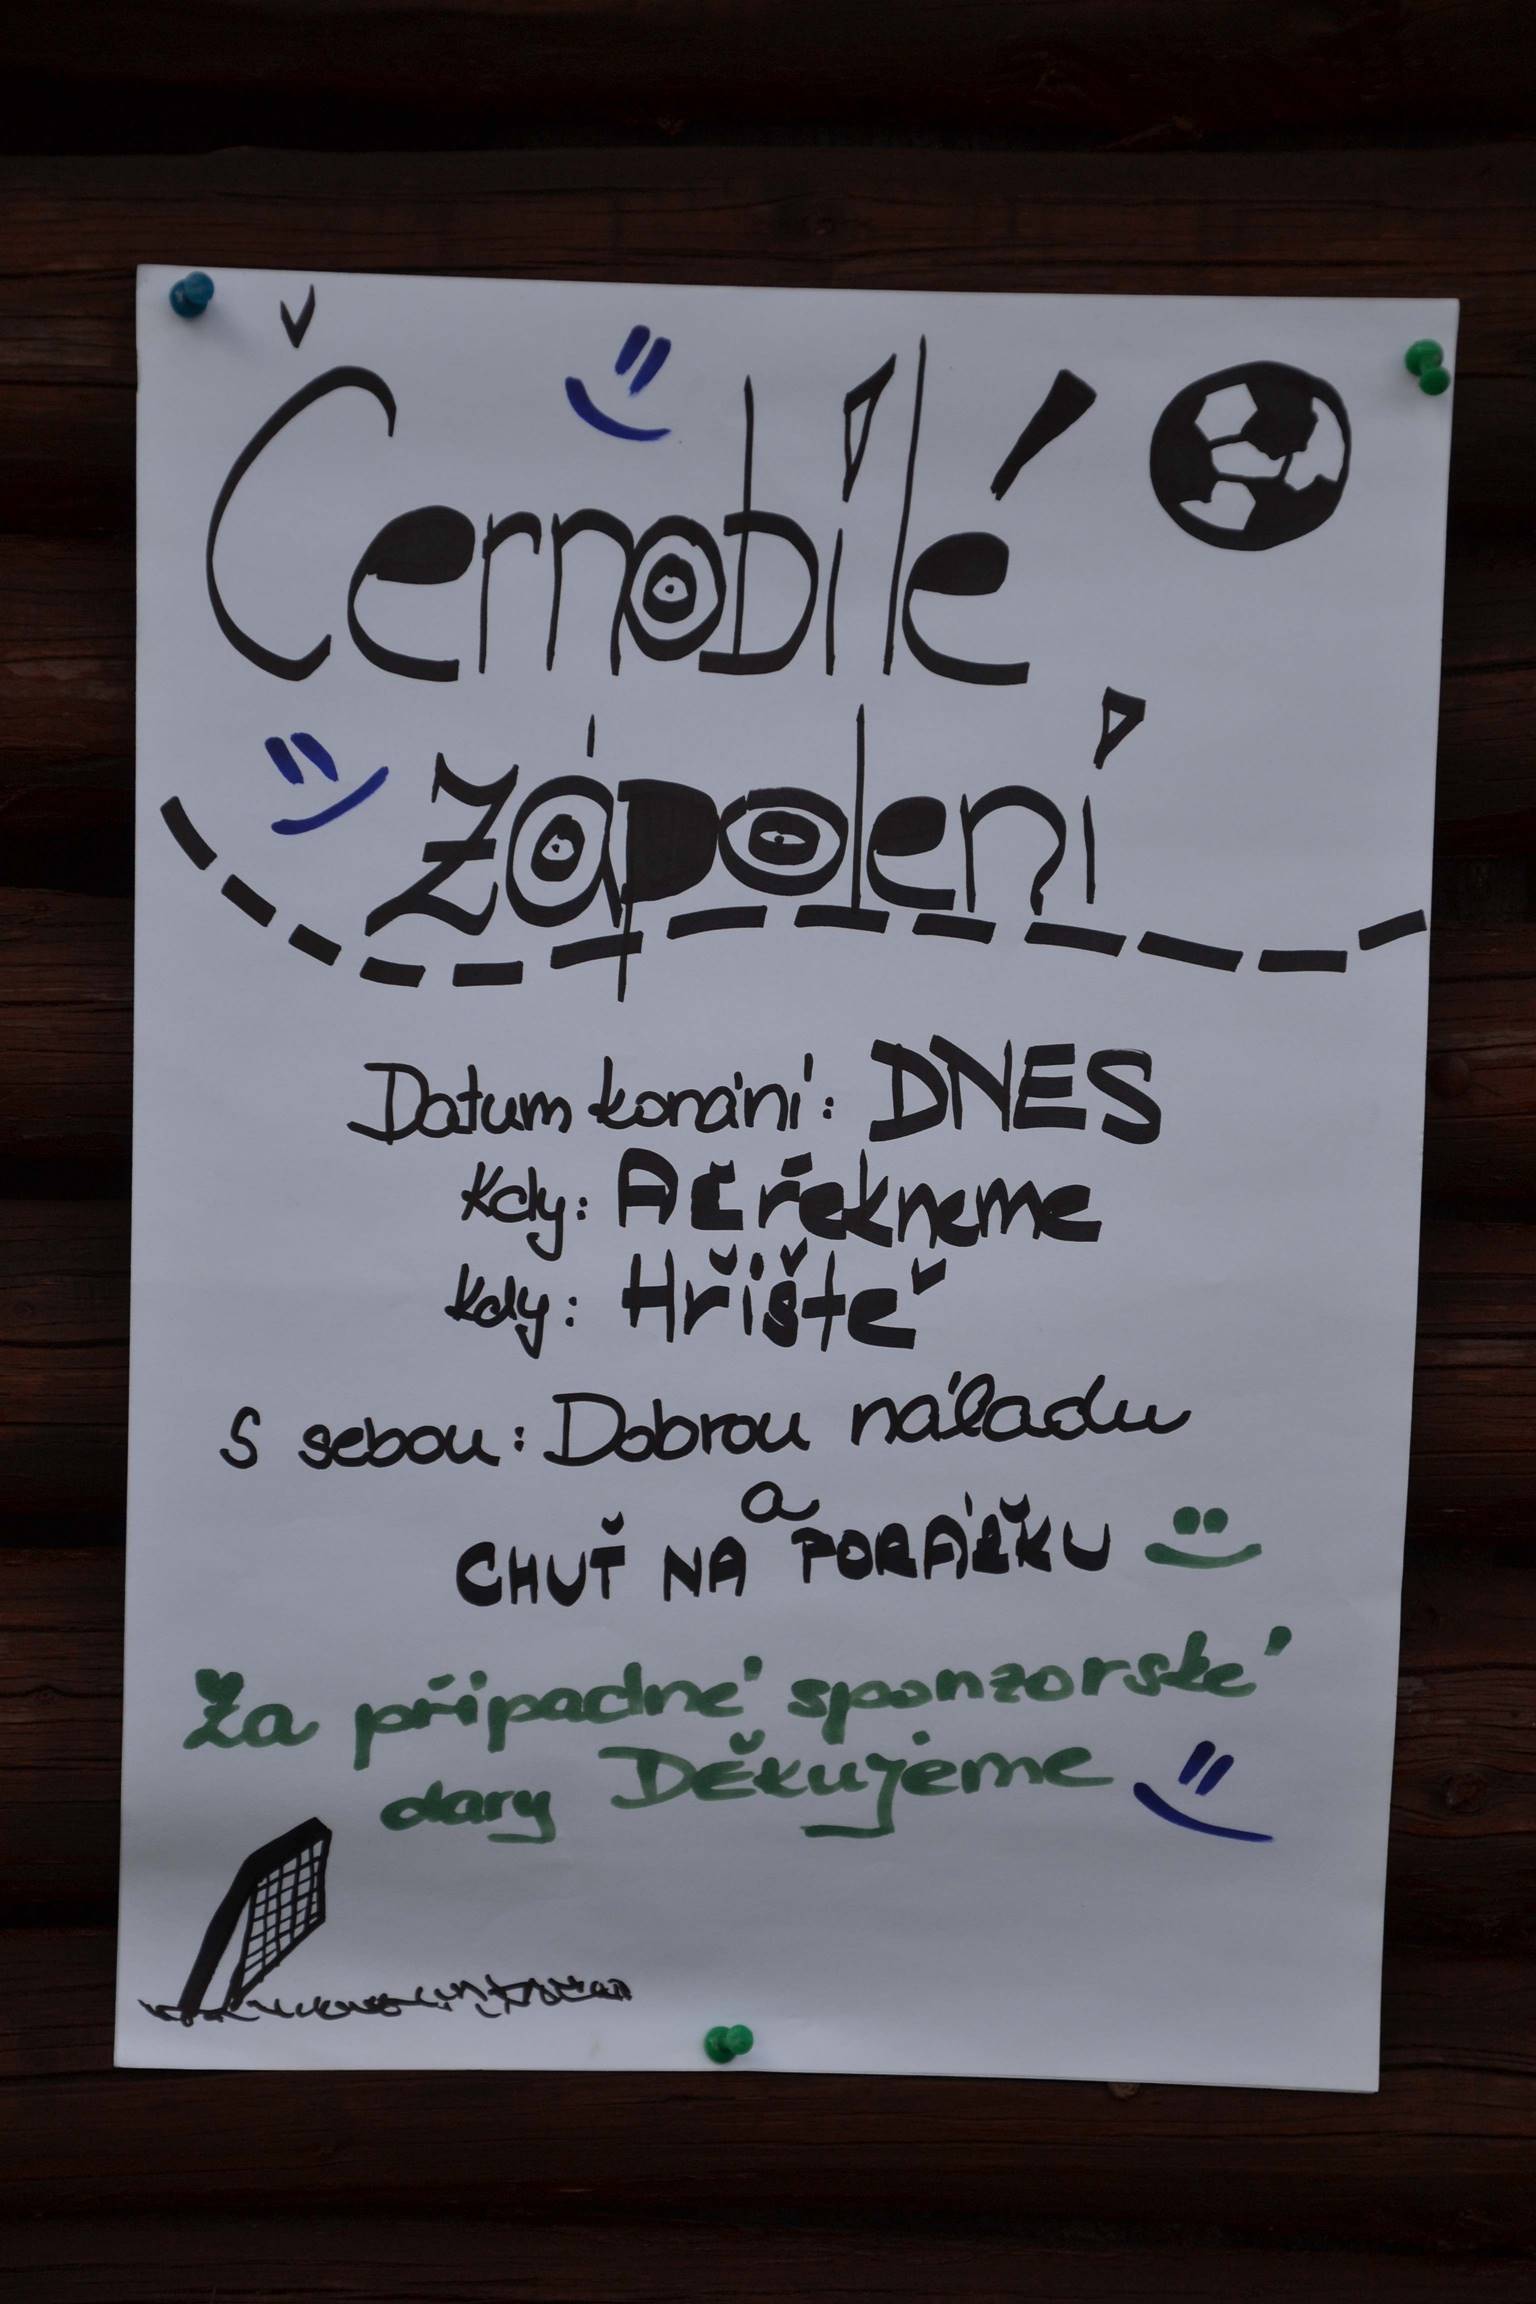 Černobílé
zápolení
Datum konání: DNES
Kdy: Ač řekneme
Kdy: Hřiště
S sebou: Dobrou náladu
a
CHUŤ NA PORÁŽKU
Za případné sponzorské
dary Děkujeme